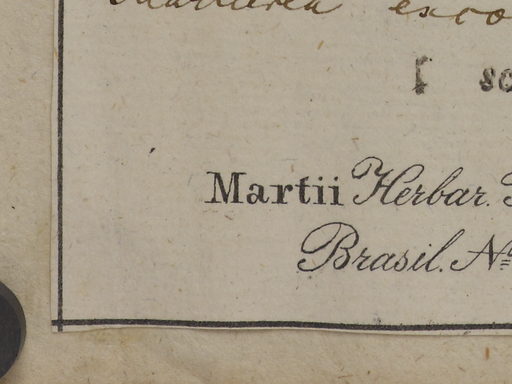 exco
[ sc
Martii Herbar.
Brasil. Nº